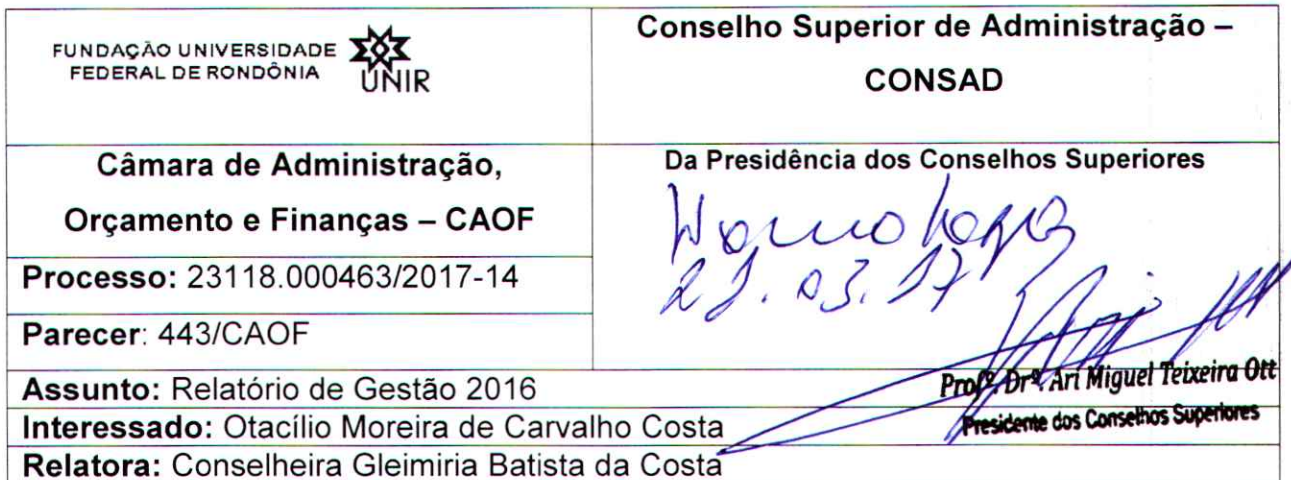 FUNDAÇÃO UNIVERSIDADE
FEDERAL DE RONDÔNIA
UNIR
Conselho Superior de Administração –
CONSAD
Câmara de Administração,
Orçamento e Finanças – CAOF
Da Presidência dos Conselhos Superiores
Processo: 23118.000463/2017-14
Parecer: 443/CAOF
Assunto: Relatório de Gestão 2016
Profº. Drº. Ari Miguel Teixeira Ott
Presidente dos Conselhos Superiores
Interessado: Otacílio Moreira de Carvalho Costa
Relatora: Conselheira Gleimiria Batista da Costa